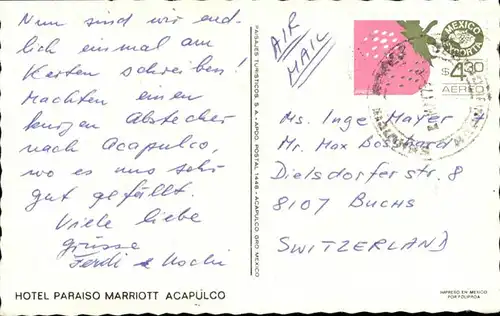 Nun sind wir end-
lich einmal am
Karten schreiben!
Machten einen
kurzen Abstecher
nach Acapulco,
wo es uns sehr
gut gefällt.
Viele liebe
Grüsse
Ferdi &
HOTEL PARAISO MARRIOTT ACAPULCO
PAISAJES TURISTICOS, S. A. - APDO. POSTAL 1448 - ACAPULCO, GRO. MEXICO
AIR
MAIL
MEXICO
EXPORTA
$4.30
AEREO
Ms. Inge Mayer
Mr. Max Bosshard
Dielsdorferstr. 8
8107 BUCHS
SWITZERLAND
IMPRESO EN MEXICO
POR FOLIPROA